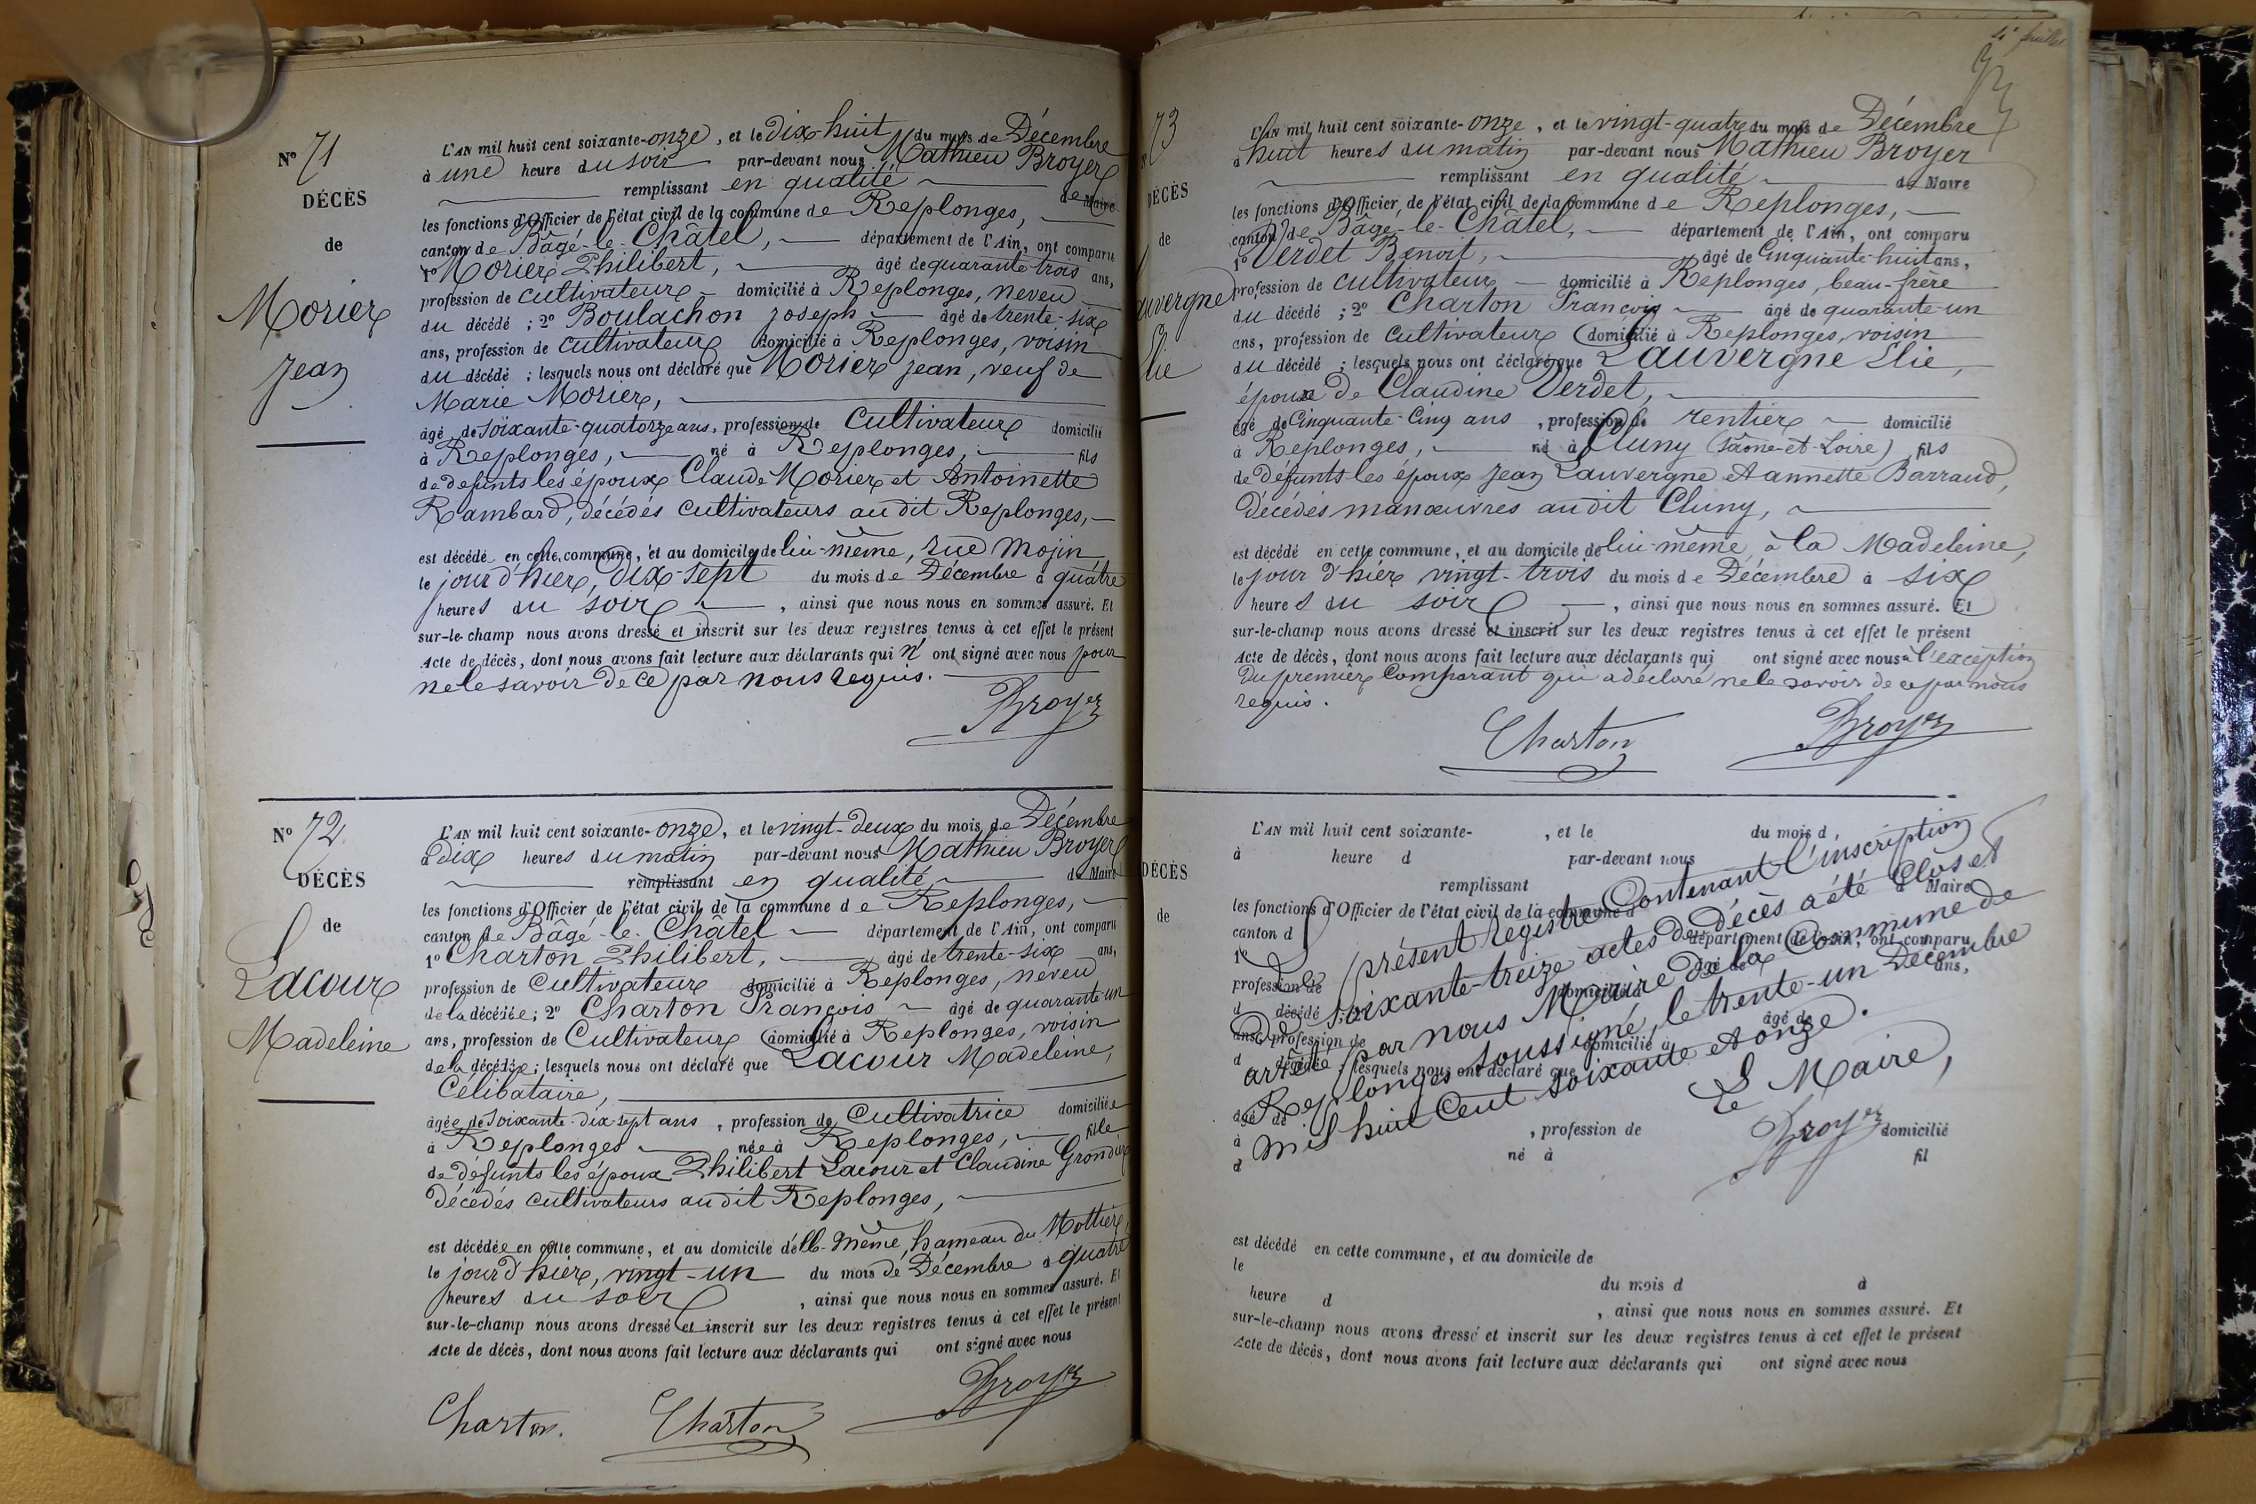 Nº 71
DÉCÈS
de
Morier
Jean
L'AN mil huit cent soixante-onze, et le dix-huit du mois de Décembre
à une heure du soir par-devant nous Mathieu Broyer
remplissant en qualité de Maire
les fonctions d'Officier de l'état civil de la commune de Replonges,
canton de Bâgé-le-Châtel, département de l'Ain, ont comparu
1º Morier Philibert, âgé de quarante-trois ans,
profession de cultivateur domicilié à Replonges, neveu
du décédé ; 2º Boulachon Joseph âgé de trente-six
ans, profession de cultivateur domicilié à Replonges, voisin
du décédé ; lesquels nous ont déclaré que Morier Jean, veuf de
Marie Morier,
âgé de soixante-quatorze ans, profession de Cultivateur domicilié
à Replonges, né à Replonges, fils
de défunts les époux Claude Morier et Antoinette
Rambard, décédés cultivateurs au dit Replonges,
est décédé en cette commune, et au domicile de lui-même, rue Mojin
le jour d'hier, dix-sept du mois de Décembre à quatre
heures du soir, ainsi que nous nous en sommes assuré. Et
sur-le-champ nous avons dressé et inscrit sur les deux registres tenus à cet effet le présent
Acte de décès, dont nous avons fait lecture aux déclarants qui n'ont signé avec nous pour
ne le savoir de ce par nous requis.
Broyer
Nº 72
DÉCÈS
de
Lacour
Madeleine
L'AN mil huit cent soixante-onze, et le vingt-deux du mois de Décembre
à dix heures du matin par-devant nous Mathieu Broyer
remplissant en qualité de Maire
les fonctions d'Officier de l'état civil de la commune de Replonges,
canton de Bâgé-le-Châtel département de l'Ain, ont comparu
1º Charton Philibert, âgé de trente-six ans,
profession de Cultivateur domicilié à Replonges, neveu
de la décédée ; 2º Charton François âgé de quarante-un
ans, profession de Cultivateur domicilié à Replonges, voisin
de la décédée ; lesquels nous ont déclaré que Lacour Madeleine,
Célibataire,
âgée de soixante-dix-sept ans, profession de Cultivatrice domiciliée
à Replonges née à Replonges, fille
de défunts les époux Philibert Lacour et Claudine
décédés cultivateurs au dit Replonges,
est décédée en cette commune, et au domicile d'elle-même, hameau du Mottier,
le jour d'hier, vingt-un du mois de Décembre à quatre
heures du soir, ainsi que nous nous en sommes assuré. Et
sur-le-champ nous avons dressé et inscrit sur les deux registres tenus à cet effet le présent
Acte de décès, dont nous avons fait lecture aux déclarants qui ont signé avec nous
Broyer
Charton. Charton
73
DÉCÈS
de
auvergne
lie
L'AN mil huit cent soixante-onze, et le vingt-quatre du mois de Décembre
à huit heures du matin par-devant nous Mathieu Broyer
remplissant en qualité de Maire
les fonctions d'Officier de l'état civil de la commune de Replonges,
canton de Bâgé-le-Châtel, département de l'Ain, ont comparu
1º Verdet Benoit, âgé de Cinquante-huit ans,
profession de cultivateur domicilié à Replonges, beau-frère
du décédé ; 2º Charton François âgé de quarante-un
ans, profession de Cultivateur domicilié à Replonges, voisin
du décédé ; lesquels nous ont déclaré que Lauvergne Elie,
époux de Claudine Verdet,
âgé de Cinquante-Cinq ans, profession de rentier domicilié
à Replonges, né à Cluny (Saône-et-Loire) fils
de défunts les époux Jean Lauvergne et annette Barraud,
Décédés manœuvres au dit Cluny,
est décédé en cette commune, et au domicile de lui-même, à la Madeleine,
le jour d'hier vingt-trois du mois de Décembre à six
heures du soir, ainsi que nous nous en sommes assuré. Et
sur-le-champ nous avons dressé et inscrit sur les deux registres tenus à cet effet le présent
Acte de décès, dont nous avons fait lecture aux déclarants qui ont signé avec nous à l'exception
du premier Comparant qui a déclaré ne le savoir de ce par nous
requis.
Charton Broyer
DÉCÈS
de
L'AN mil huit cent soixante- , et le du mois d
à heure d par-devant nous
remplissant d Maire
les fonctions d'Officier de l'état civil de la commune d
canton d département de l'Ain, ont comparu
1º âgé de ans,
profession de domicilié à
d décédé ; 2º âgé de
ans, profession de domicilié à
d décédé ; lesquels nous ont déclaré que
âgé de , profession de domicilié
à né à fil
d
Le présent registre Contenant l'inscription
de soixante-treize actes de Décès a été Clos et
arrêté par nous Maire de la Commune de
Replonges soussigné, le trente-un Décembre
mil huit Cent soixante et onze.
Le Maire,
Broyer
est décédé en cette commune, et au domicile de
le du mois d à
heure d , ainsi que nous nous en sommes assuré. Et
sur-le-champ nous avons dressé et inscrit sur les deux registres tenus à cet effet le présent
Acte de décès, dont nous avons fait lecture aux déclarants qui ont signé avec nous